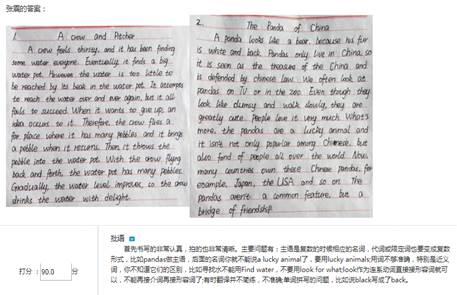 张震的答案：
1.
A crew and Pitcher
A crew feels thirsty, and it has been finding
some water everyone. Eventually it finds a big
water pot. However the water is too little to
be reached by its beak in the water pot. It attempts
to reach the water over and over again, but it all
fails to succeed. When it wants to give up, an
idea occurs to it. Therefore, the crow flies a
far place where it has many pebbles and it brings
a pebble when it returns. Then it throws the
pebble into the water pot. With the crow flying
back and forth, the water pot has many pebbles.
Gradually, the water level improves, so the crow
drinks the water with delight.
2.
The Panda of China
A panda looks like a bear, because his fur
is white and back. Pandas only live in China, so
it is seen as the treasure of the China and
is defended by chinese law. We often look at
pandas on TV or in the zoo. Even though they
look like clumsy and walk slowly, they are
greatly cute. People love it very much. What's
more, the pandas are a lucky animal and
it isn't not only popular among Chinese, but
also fond of people all over the world. Now,
many countries own these Chinese pandas, for
example, Japan, the USA and so on. The
pandas aren't a common feature, but a
bridge of friendship
批语
首先书写的非常认真，拍的也非常清晰。主要问题有：主语是复数的时候相应的名词，代词或限定词也要变成复数
形式，比如pandas做主语，后面的名词你就不能说a lucky animal了，要用lucky animals;用词不够准确，特别是近义
词，你不知道它们的区别，比如寻找水不能用Find water，不要用look for what;look作为连系动词直接接形容词就可
以，不能再接介词再接形容词了;有时翻译并不简练，不准确;单词拼写的问题，比如说black写成了back。
打分：90.0 分